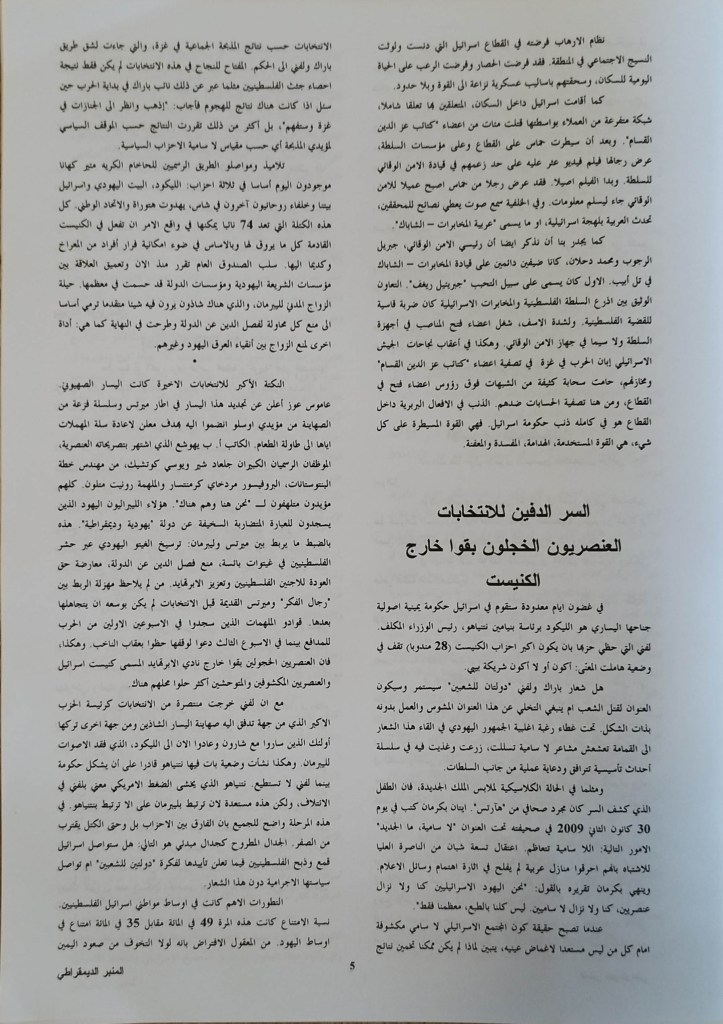 نظام الارهاب فرضته في القطاع اسرائيل التي دنست ولوثت
النسيج الاجتماعي في المنطقة. فقد فرضت الحصار وفرضت الرعب على الحياة
اليومية للسكان، وسحقتهم باساليب عسكرية نزاعة الى القوة وبلا حدود.
كما أقامت اسرائيل داخل السكان، المتعلقين بها تعلقا شاملا،
شبكة متفرعة من العملاء بواسطتها قتلت مئات من اعضاء "كتائب عز الدين
القسام". وبعد أن سيطرت حماس على القطاع وعلى مؤسسات السلطة،
عرض رجالها فيلم فيديو عثر عليه على حد زعمهم في قيادة الامن الوقائي
للسلطة. وبدا الفيلم اصيلا. فقد عرض رجلا من حماس اصبح عميلا للامن
الوقائي جاء ليسلم معلومات. وفي الخلفية سمع صوت يعطي نصائح للمحققين،
تحدث العربية بلهجة اسرائيلية، او ما يسمى "عربية المخابرات – الشاباك".
كما يجدر بنا أن نذكر ايضا أن رئيسي الامن الوقائي، جبريل
الرجوب ومحمد دحلان، كانا ضيفين دائمين على قيادة المخابرات – الشاباك
في تل أبيب. الاول كان يسمى على سبيل التحبب "جبريئيل ريغف". التعاون
الوثيق بين اذرع السلطة الفلسطينية والمخابرات الاسرائيلية كان ضربة قاسية
للقضية الفلسطينية. ولشدة الاسف، شغل اعضاء فتح المناصب في أجهزة
السلطة ولا سيما في جهاز الامن الوقائي. وهكذا في أعقاب نجاحات الجيش
الاسرائيلي إبان الحرب في غزة في تصفية اعضاء "كتائب عز الدين القسام"
ومخازنهم، حامت سحابة كثيفة من الشبهات فوق رؤوس اعضاء فتح في
القطاع، ومن هنا تصفية الحسابات ضدهم. الذنب في الافعال البربرية داخل
القطاع هو في كامله ذنب حكومة اسرائيل. فهي القوة المسيطرة على كل
شيء، هي القوة المستخدمة، الهدامة، المفسدة والمعفنة.
السر الدفين للانتخابات
العنصريون الخجلون بقوا خارج
الكنيست
في غضون ايام معدودة ستقوم في اسرائيل حكومة يمينية اصولية
جناحها اليساري هو الليكود برئاسة بنيامين نتنياهو، رئيس الوزراء المكلف.
لفني التي حظي حزبها بان يكون اكبر احزاب الكنيست (28 مندوبا) تقف في
وضعية هاملت المعنّى: أكون أو لا أكون شريكة بيبي.
هل شعار باراك ولفني "دولتان للشعبين" سيستمر وسيكون
العنوان لقتل الشعب ام ينبغي التخلي عن هذا العنوان المشوس والعمل بدونه
بذات الشكل. تحت غطاء رغبة اغلبية الجمهور اليهودي في القاء هذا الشعار
الى القمامة تعشعش مشاعر لا سامية تسللت، زرعت وغذيت فيه في سلسلة
أحداث تأسيسية تترافق ودعاية عملية من جانب السلطات.
ومثلما في الحالة الكلاسيكية لملابس الملك الجديدة، فان الطفل
الذي كشف السر كان مجرد صحافي من "هآرتس". ايتان بكرمان كتب في يوم
30 كانون الثاني 2009 في صحيفته تحت العنوان "لا سامية، ما الجديد"
الامور التالية: اللا سامية تتعاظم. اعتقال تسعة شبان من الناصرة العليا
للاشتباه بانهم احرقوا منازل عربية لم يفلح في اثارة اهتمام وسائل الاعلام.
وينهي بكرمان تقريره بالقول: "نحن اليهود الاسرائيليين كنا ولا نزال
عنصريين، كنا ولا نزال لا ساميين. ليس كلنا بالطبع، معظمنا فقط".
عندما تصبح حقيقة كون المجتمع الاسرائيلي لا سامي مكشوفة
امام كل من ليس مستعدا لاغماض عينيه، يتبين لماذا لم يكن ممكنا تخمين نتائج
الانتخابات حسب نتائج المذبحة الجماعية في غزة، والتي جاءت لشق طريق
باراك ولفني الى الحكم. المفتاح للنجاح في هذه الانتخابات لم يكن فقط نتيجة
احصاء جثث الفلسطينيين مثلما عبر عن ذلك نائب باراك في بداية الحرب حين
سئل اذا كانت هناك نتائج للهجوم فأجاب: "إذهب وانظر الى الجنازات في
غزة وستفهم"، بل أكثر من ذلك تقررت النتائج حسب الموقف السياسي
لمؤيدي المذبحة أي حسب مقياس لا سامية الاحزاب السياسية.
تلاميذ ومواصلو الطريق الرسميين للحاخام الكريه مئير كهانا
موجودون اليوم أساسا في ثلاثة احزاب: الليكود، البيت اليهودي واسرائيل
بيتنا وخلفاء روحانيون آخرون في شاس، يهدوت هتوراة والاتحاد الوطني. كل
هذه الكتلة التي تعد 74 نائبا يمكنها في واقع الامر ان تفعل في الكنيست
القادمة كل ما يروق لها وبالاساس في ضوء امكانية فرار أفراد من المعراخ
وكديما اليها. سلب الصندوق العام تقرر منذ الان وتعميق العلاقة بين
مؤسسات الشريعة اليهودية ومؤسسات الدولة قد حسمت في معظمها. حيلة
الزواج المدني لليبرمان، والذي هناك شاذون يرون فيه شيئا متقدما ترمي أساسا
الى منع كل محاولة لفصل الدين عن الدولة وطرحت في النهاية كما هي: أداة
اخرى لمنع الزواج بين أنقياء العرق اليهود وغيرهم.
*
النكتة الأكبر للانتخابات الاخيرة كانت اليسار الصهيوني.
عاموس عوز أعلن عن تجديد هذا اليسار في اطار ميرتس وسلسلة فزعة من
الصهاينة من مؤيدي اوسلو انضموا اليه بهدف معلن لاعادة سلة المهملات
اياها الى طاولة الطعام. الكاتب أ. ب يهوشع الذي اشتهر بتصريحاته العنصرية،
الموظفان الرسميان الكبيران جلعاد شير ويوسي كوتشيك، من مهندس خطة
البنتوستانات، البروفيسور مردخاي كرمنتسار والملهمة رونيت متلون. كلهم
مؤيدون متلهفون لـــ "نحن هنا وهم هناك". هؤلاء الليبراليون اليهود الذين
يسجدون للعبارة المتضاربة السخيفة عن دولة "يهودية وديمقراطية". هذه
بالضبط ما يربط بين ميرتس وليبرمان: ترسيخ الغيتو اليهودي عبر حشر
الفلسطينيين في غيتوات بائسة، منع فصل الدين عن الدولة، معارضة حق
العودة للاجئين الفلسطينيين وتعزيز الابرتهايد. من لم يلاحظ مهزلة الربط بين
"رجال الفكر" وميرتس القديمة قبل الانتخابات لم يكن بوسعه ان يتجاهلها
بعدها. قوادو الملهمات الذين سجدوا في الاسبوعين الاولين من الحرب
للمدافع بينما في الاسبوع الثالث دعوا لوقفها حظوا بعقاب الناخب. وهكذا،
فان العنصريين الخجولين بقوا خارج نادي الابرتهايد المسمى كنيست اسرائيل
والعنصريين المكشوفين والمتوحشين أكثر حلوا محلهم هناك.
مع ان لفني خرجت منتصرة من الانتخابات كرئيسة الحزب
الاكبر الذي من جهة تدفق اليه صهاينة اليسار الشاذين ومن جهة اخرى تركها
أولئك الذين ساروا مع شارون وعادوا الان الى الليكود، الذي فقد الاصوات
لليبرمان. وهكذا نشأت وضعية بات فيها نتنياهو قادرا على أن يشكل حكومة
بينما لفني لا تستطيع. نتنياهو الذي يخشى الضغط الامريكي معني بلفني في
الائتلاف، ولكن هذه مستعدة لان ترتبط بليبرمان على الا ترتبط بنتنياهو. في
هذه المرحلة واضح للجميع بان الفارق بين الاحزاب بل وحتى الكتل يقترب
من الصفر. الجدال المطروح كجدال مبدئي هو التالي: هل ستواصل اسرائيل
قمع وذبح الفلسطينيين فيما تعلن تأييدها لفكرة "دولتين للشعبين" ام تواصل
سياستها الاجرامية دون هذا الشعار.
التطورات الاهم كانت في اوساط مواطني اسرائيل الفلسطينيين.
نسبة الامتناع كانت هذه المرة 49 في المائة مقابل 35 في المائة امتناع في
اوساط اليهود. من المعقول الافتراض بانه لولا التخوف من صعود اليمين
5
المنبر الديمقراطي